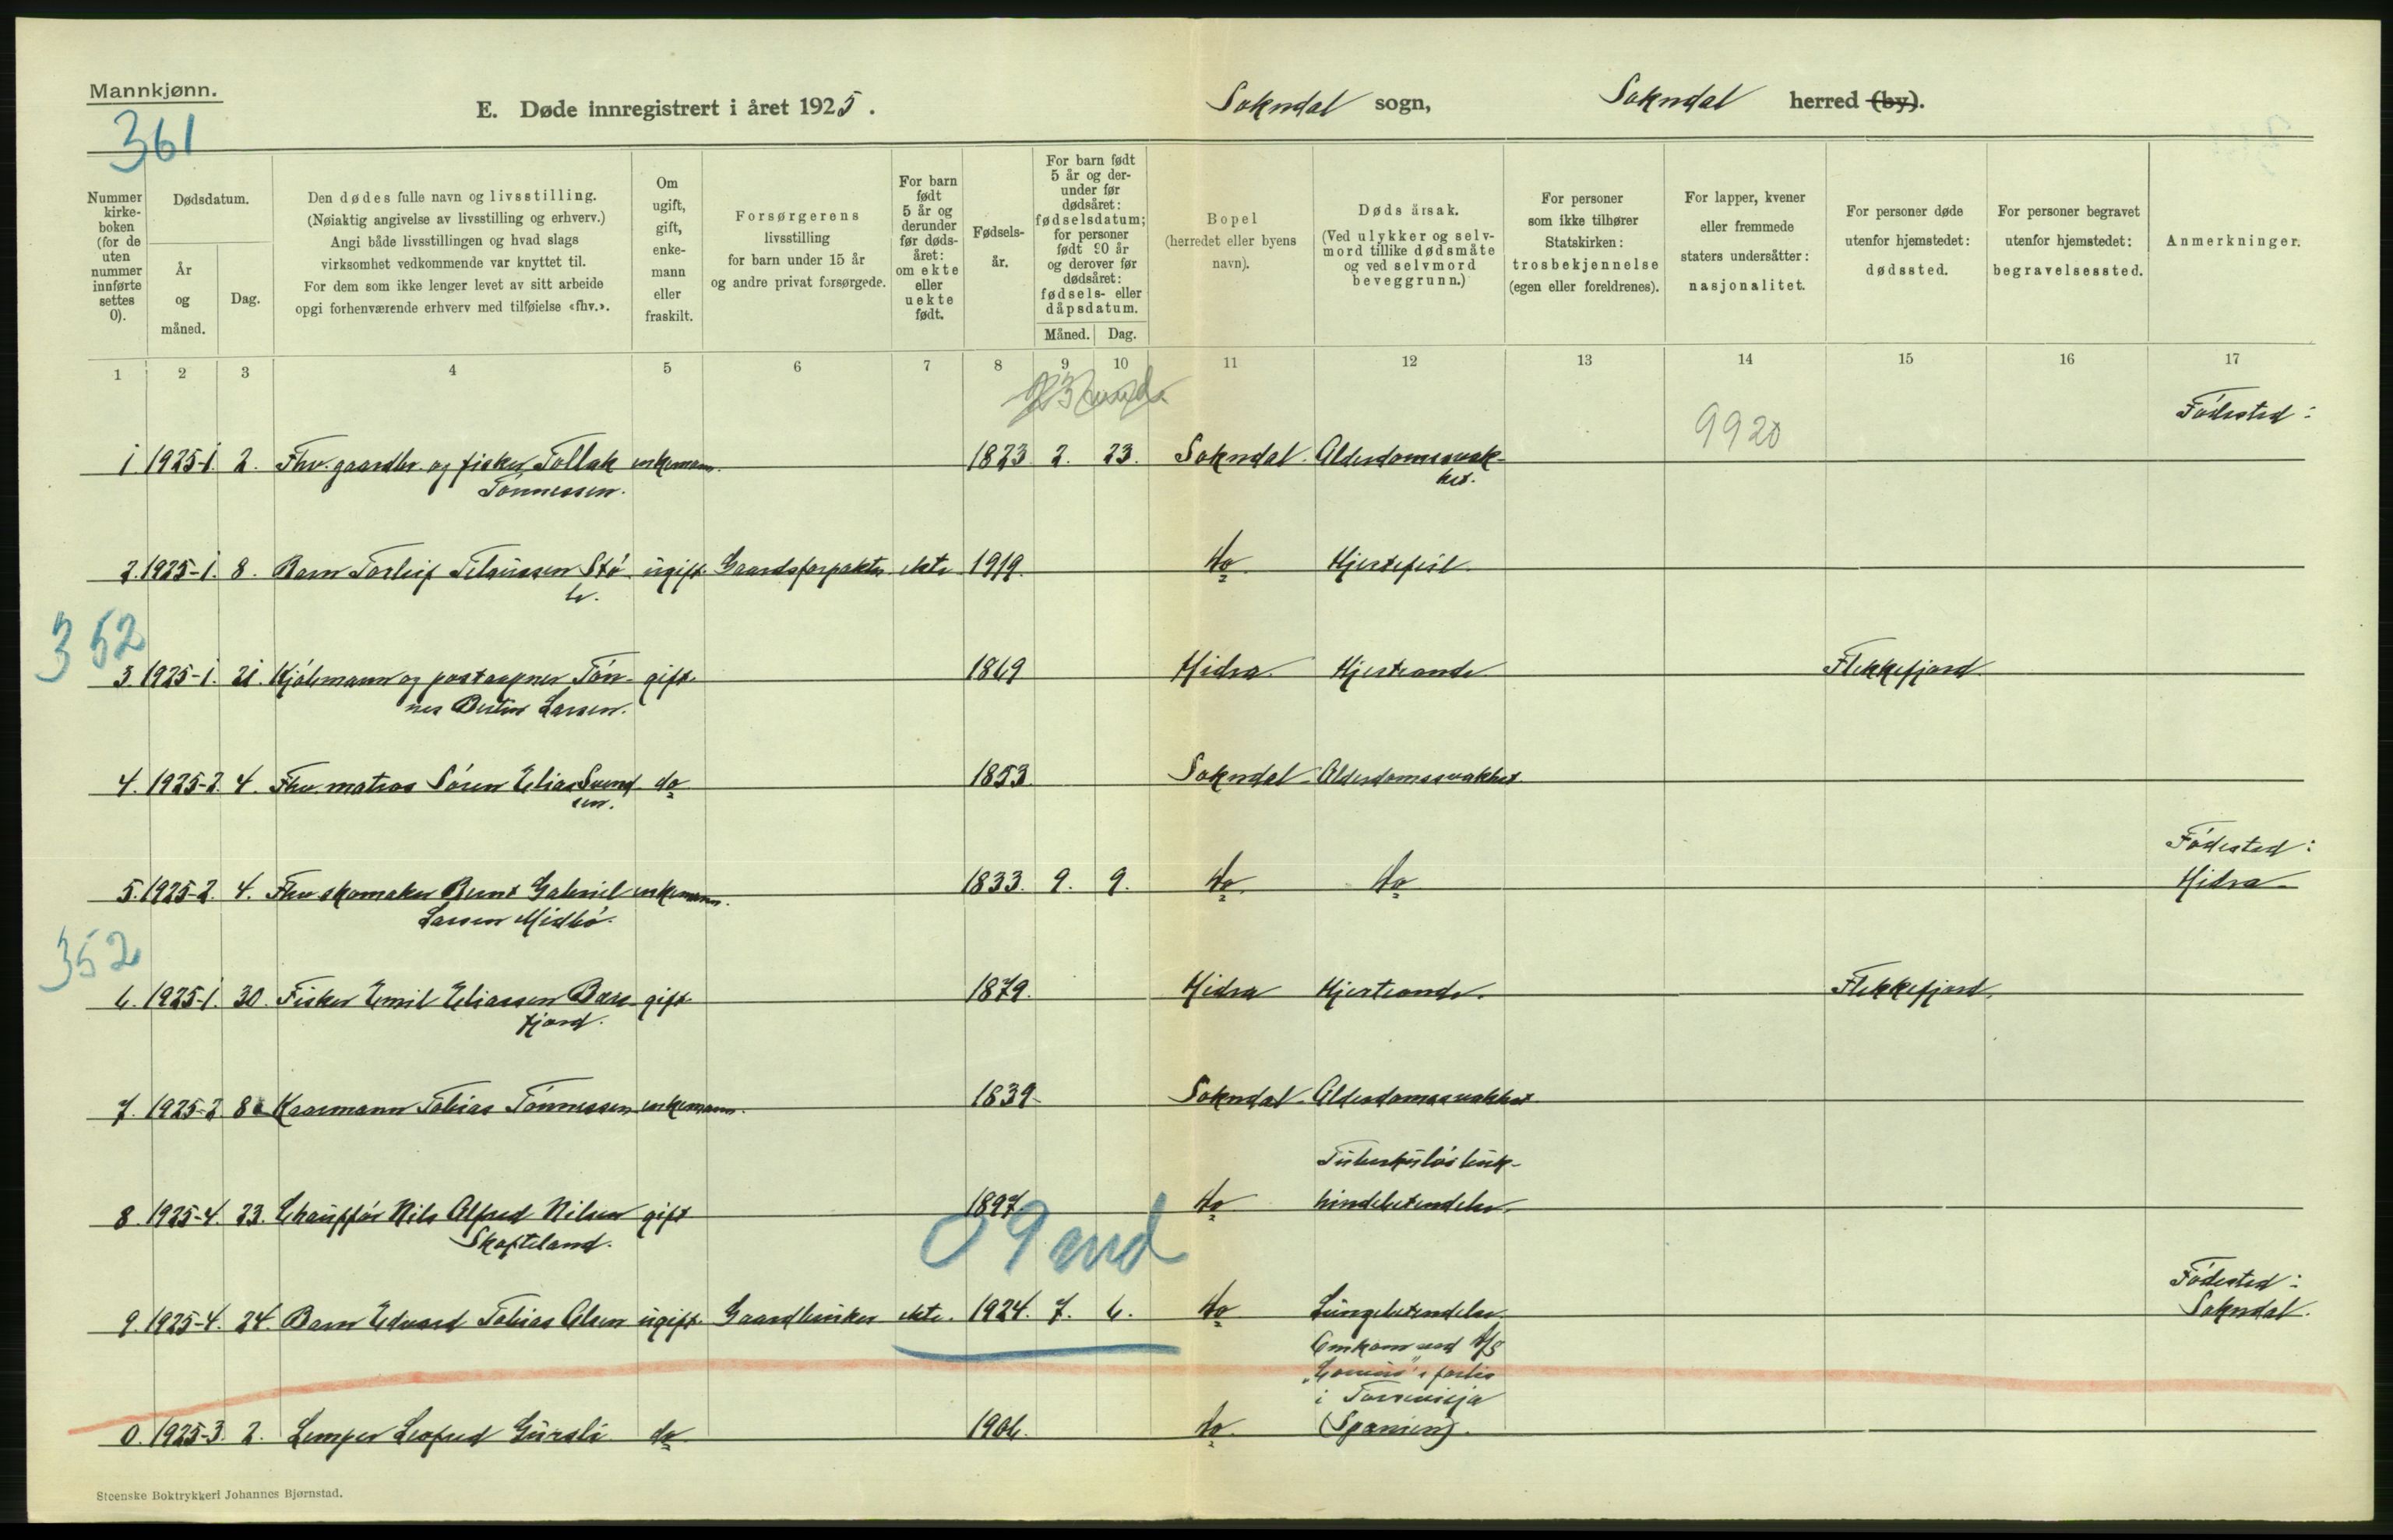 Mannkjønn.
361
E. Døde innregistrert i året 1925.
Sokndal sogn,
Sokndal herred (by).
Nummer kirke-boken (for de uten nummer innførte settes 0).
Dødsdatum.
År og måned.
Dag.
Den dødes fulle navn og livsstilling.
(Nøiaktig angivelse av livsstilling og erhverv.)
Angi både livsstillingen og hvad slags
virksomhet vedkommende var knyttet til.
For dem som ikke lenger levet av sitt arbeide
opgi forhenværende erhverv med tilføielse «fhv.».
Om ugift, gift, enke-mann eller fraskilt.
Forsørgerens
livsstilling
for barn under 15 år
og andre privat forsørgede.
For barn født 5 år og derunder før døds-året: om ekte eller uekte født.
Fødsels-år.
For barn født 5 år og der-under før dødsåret: fødselsdatum; for personer født 90 år og derover før dødsåret: fødsels- eller dåpsdatum.
Måned. Dag.
Bopel
(herredet eller byens
navn).
Dødsårsak.
(Ved ulykker og selv-
mord tillike dødsmåte
og ved selvmord
beveggrunn.)
For personer
som ikke tilhører
Statskirken:
trosbekjennelse
(egen eller foreldrenes).
For lapper, kvener
eller fremmede
staters undersåtter:
nasjonalitet.
For personer døde
utenfor hjemstedet:
dødssted.
For personer begravet
utenfor hjemstedet:
begravelsessted.
Anmerkninger.
1 2 3 4 5 6 7 8 9 10 11 12 13 14 15 16 17
9920
Fødested:
1 1925-1. 2. Fhv. gaardbr. og fisker Tollak enkemann. 1823 2. 23. Sokndal. Alderdomssvak-
Tönnessen. het.
2. 1925-1. 8. Barn Torleif ugift. Gaardsforpakter ekte 1919. do. Hjertefeil.
352
3. 1925-1. 21. Kjøbmann og postaapner Tön- gift. 1869 Hidra. Hjerteonde Flekkefjord.
nes Bertin Larsen.
4. 1925-2. 4. Fhv. matros Sören Elias Svend do 1853. Sokndal. Alderdomssvakhet
sen.
Fødested:
5. 1925-2. 4. Fhv skomaker Bernt Gabriel enkemann. 1833. 9. 9. do. do Hidra
Larsen Midbö.
352
6. 1925-1. 30. Fisker Emil Eliassen gift. 1879. Hidra Hjerteonde. Flekkefjord.
fjord.
7. 1925-2 8. Kaarmann Tobias Tönnessen enkemann. 1839. Sokndal. Alderdomssvakhet
Tuberkuløs buk-
8. 1925-4. 23. Chauffør Nils Alfred Nilsen gift 1897. do hindebetendelse.
Skofteland.
09 md
Fødested:
9. 1925-4. 24. Barn Edvard Tobias Olsen ugift. Gaardbruker ekte. 1924. 7. 6. do Lungebetendelse. Sokndal.
Omkom ved
forlis
i Torrevieja
0. 1925-3. 2. Lemper Leofred Gursli do. 1906. do. (Spanien).
Steenske Boktrykkeri Johannes Bjørnstad.